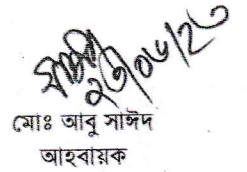 ২৩/০৬/২৩
মোঃ আবু সাঈদ
আহবায়ক